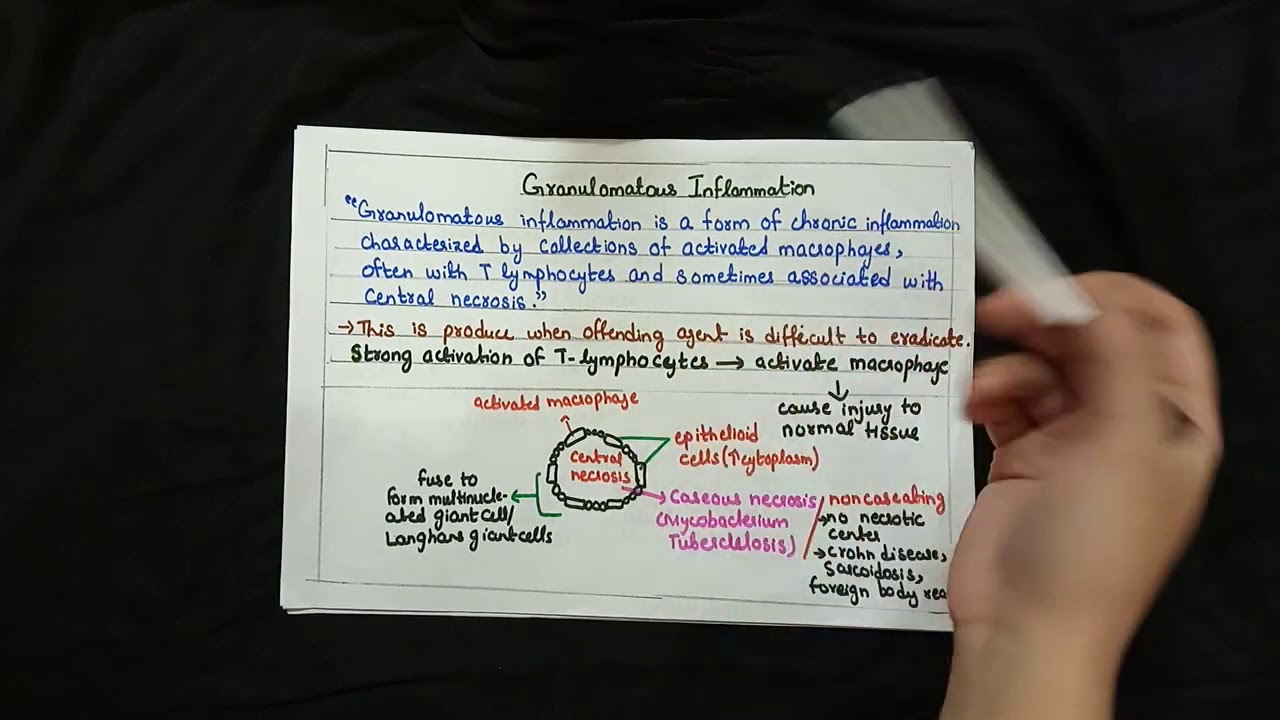 Granulomatous Inflammation
"Granulomatous inflammation is a form of chronic inflammation
characterized by collections of activated macrophages,
often with T lymphocytes and sometimes associated with
Central necrosis."
→This is produce when offending agent is difficult to eradicate.
Strong activation of T-lymphocytes → activate macrophage
↓
cause injury to
normal tissue
activated macrophage
central
necrosis
epithelioid
cells (↑cytoplasm)
fuse to
form multinucle-
ated giant cell/
Langhans giant cells
→Caseous necrosis
(Mycobacterium
Tuberclelosis)
noncaseating
→no necrotic
center
→Crohn disease,
Sarcoidosis,
foreign body rea